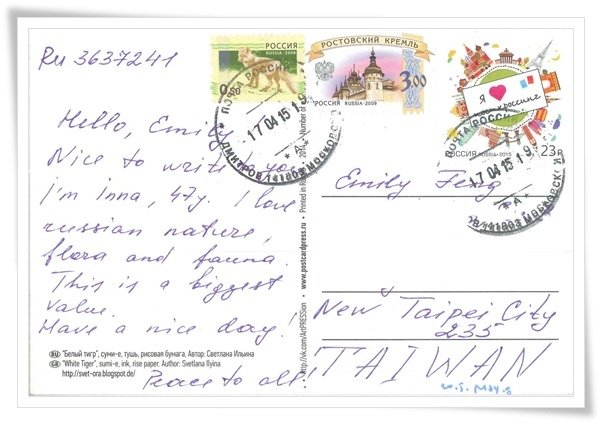 Ru 3637241
Hello, Emily
Nice to write you
I'm Inna, 47y. I love
russian nature,
flora and fauna.
This is a biggest
value.
Have a nice day!
Peace to all!
RU "Белый тигр", суми-е, тушь, рисовая бумага, Автор: Светлана Ильина
GB "White Tiger", sumi-e, ink, rise paper. Author: Svetlana Ilyina
http://svet-ora.blogspot.de/
http://vk.com/ArtPRESSion • www.postcardpress.ru • Printed in
РОССИЯ
RUSSIA
9.50
РОСТОВСКИЙ КРЕМЛЬ
3.00
РОССИЯ RUSSIA-2009
Я ❤
РОССИЯ
23р
17 04 15 19
ДМИТРОВ 141803 МОСКОВСК
ПОЧТА РОССИИ
17 04 15 19
Emily Feng
New Taipei City
235
TAIWAN